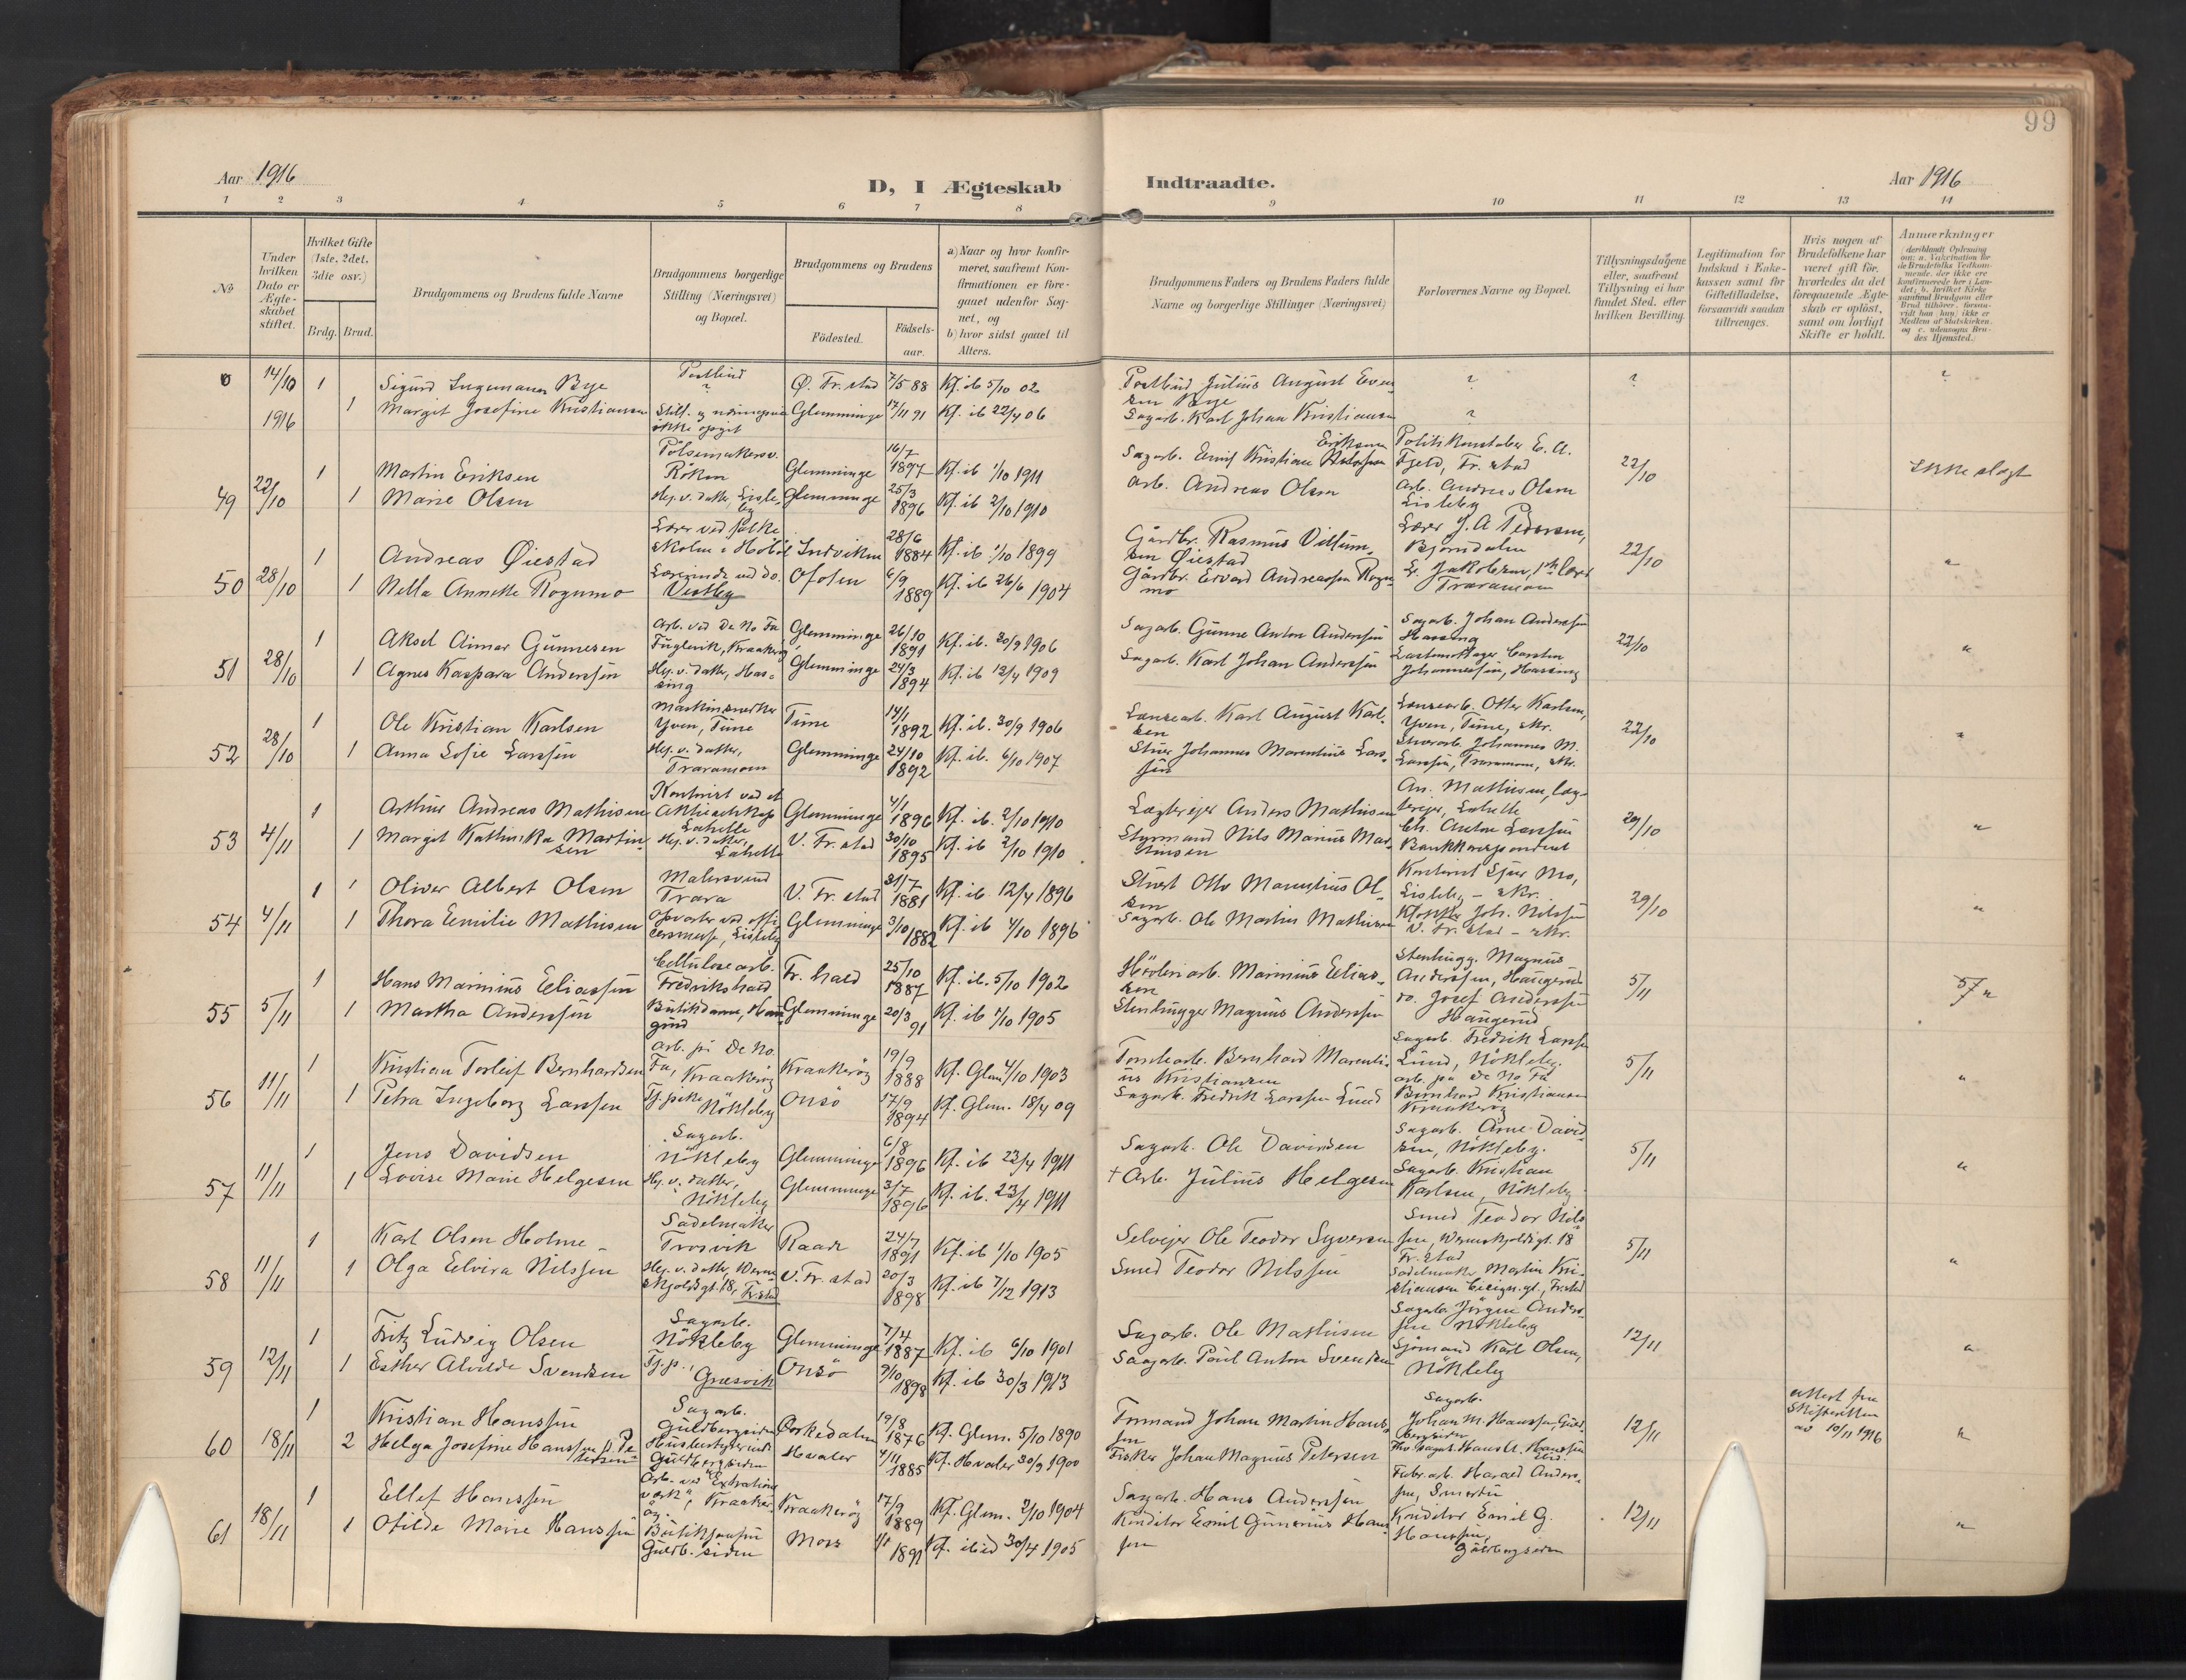 99
Aar 1916
D, I Ægteskab Indtraadte.
Aar 1916
1 2 3 4 5 6 7 8 9 10 11 12 13 14
No
Under hvilken Dato er Ægteskabet stiftet.
Hvilket Gifte (1ste, 2det, 3die osv.)
Brdg. Brud.
Brudgommens og Brudens fulde Navne
Brudgommens borgerlige Stilling (Næringsvei) og Bopæl.
Brudgommens og Brudens
Födested. Födselsaar.
a) Naar og hvor konfirmeret, saafremt Konfirmationen er foregaaet udenfor Sognet, og
b) hvor sidst gaaet til Alters.
Brudgommens Faders og Brudens Faders fulde Navne og borgerlige Stillinger (Næringsvei)
Forlovernes Navne og Bopæl.
Tillysningsdagene eller, saafremt Tillysning ei har fundet Sted, efter hvilken Bevilling.
Legitimation for Indskud i Enkekassen samt for Giftetilladelse, forsaavidt saadan tiltrænges.
Hvis nogen af Brudefolkene har været gift før, hvorledes da det foregaaende Ægteskab er opløst, samt om lovligt Skifte er holdt.
Anmærkninger
0 14/10 1916 1 Sigurd Ingemann Bye Postbud ? Ø. Fr.stad 7/5 88 Kf. ib 5/10 02 Postbud Julius August Evensen Bye ? ? ?
1 Margit Josefine Kristiansen Still. og næringsvei ikke opgit Glemminge 17/11 91 Kf. ib 22/4 06 Sagarb. Karl Johan Kristiansen ?
49 22/10 1 Martin Eriksen Pölsemakersv. Röken Glemminge 16/7 1897 Kf. ib 1/10 1911 Sagarb. Emil Kristian Eriksen Politikonstabel E. A. Fjeld, Fr.stad 22/10 Ikke slegt
1 Marie Olsen Hj. v. datter, Lisleby Glemminge 25/3 1896 Kf. ib 2/10 1910 Arb. Andreas Olsen Arb. Andreas Olsen Lisleby
50 28/10 1 Andreas Øiestad Lærer ved folkeskolen i Höböl Indviken 28/6 1884 Kf. ib 1/10 1899 Gårdbr. Rasmus Villumsen Øiestad Lærer J. A. Pedersen, Bjørndalen 22/10 "
1 Nella Annette Rognmo Lærerinde ved do. Vestby Ofoten 6/9 1889 Kf. ib 26/6 1904 Gårdbr. Edvard Andreassen Rognmo L. Jakobsen, lærer Traramoen
51 28/10 1 Aksel Aimar Gunnesen Arb. ved De No Fa Fuglevik, Kraakerøy Glemminge 26/10 1891 Kf. ib. 30/9 1906 Sagarb. Gunne Anton Anderssen Sagarb. Johan Anderssen Hassing 22/10 "
1 Agnes Kaspara Anderssen Hj. v. datter, Hassing Glemminge 24/3 1894 Kf. ib 12/4 1909 Sagarb. Karl Johan Anderssen Lastemottager Carsten Johannessen, Hassing
52 28/10 1 Ole Kristian Karlsen Maskinsnekker Yven, Tune Tune 14/1 1892 Kf. ib. 30/9 1906 Lænsearb. Karl August Karlsen Lænsearb. Otter Karlsen, Yven, Tune, skr. 22/10 "
1 Anna Sofie Larssen Hj. v. datter, Traramoen Glemminge 24/10 1892 Kf. ib. 6/10 1907 Stuer Johannes Marentius Larssen Stuerarb. Johannes M. Larssen, Traramoen, skr.
53 4/11 1 Arthur Andreas Mathisen Kontorist ved et Aktieselskap Lahelle Glemminge 4/1 1896 Kf. ib. 2/10 1910 Lægterejer Anders Mathisen An. Mathisen, lægterejer, Lahelle 29/10 "
1 Margit Kathinka Martinsen Hj. v. datter, Lahelle V. Fr. stad 30/10 1895 Kf. ib 2/10 1910 Styrmand Nils Marius Martinsen Ch. Anton Larssen Bankkorrespondent
54 4/11 1 Oliver Albert Olsen Malersvend Trara V. Fr. stad 31/7 1881 Kf. ib 12/4 1896 Stuert Otto Marentius Olsen Kontorist Sjur Mo, Lisleby - skr. 29/10 "
1 Thora Emilie Mathisen Opvarter ved officersmesse, Lisleby Glemminge 3/10 1882 Kf. ib 4/10 1896 Sagarb. Ole Martin Mathisen Joh. Nilssen V. Fr. stad - skr.
55 5/11 1 Hans Marinius Eeliassen Cellulosearb. Fredrikshald Fr. hald 25/10 1887 Kf. ib. 5/10 1902 Hövleriarb. Marinius Eeliassen Stenhugg. Magnus Anderssen, Haugerud 5/11 "
1 Martha Anderssen Butikdame, Haugerud Glemminge 20/3 91 Kf. ib 1/10 1905 Stenhugger Magnus Anderssen Do. Josef Anderssen Haugerud
56 11/11 1 Kristian Torleif Bernhardsen Arb. på De No. Fa, Kraakerøy Kraakerøy 19/9 1888 Kf. Glem 4/10 1903 Tomtearb. Bernhard Marentius Kristiansen Sagarb. Fredrik Larssen Lund, Nökleby. 5/11 "
1 Petra Ingeborg Larssen Tj.pike Nökleby Onsö 17/9 1894 Kf. Glem. 18/4 09 Sagarb. Fredrik Larssen Lund Arb. på De No Fa Bernhard Kristiansen Kraakerøy
57 11/11 1 Jens Davidsen Sagarb. Nökleby Glemminge 6/8 1896 Kf. ib 23/4 1911 Sagarb. Ole Davidsen Sagarb. Arne Davidsen, Nökleby. 5/11 "
1 Lovise Marie Helgesen Hj. v. datter, Nökleby Glemminge 3/7 1896 Kf. ib. 23/4 1911 † Arb. Julius Helgesen Sagarb. Kristian Karlsen, Nökleby
58 11/11 1 Karl Olsen Holme Sadelmaker Trosvik Raade 24/7 1891 Kf. ib 1/10 1905 Selvejer Ole Teodor Syversen Smed Teodor Nilssen, Wernskjoldsgt. 18 Fr. stad 5/11 "
1 Olga Eelvira Nilssen Hj. v. datter, Wernskjoldsgt. 18, Fr.stad V. Fr. stad 20/3 1898 Kf. ib 7/12 1913 Smed Teodor Nilssen Sadelmaker Martin Kristiansen Cicign.gt., Fr.stad
59 12/11 1 Fritz Ludvig Olsen Sagarb. Nökleby Glemminge 7/4 1887 Kf. ib 6/10 1901 Sagarb. Ole Mathisen Sagarb. Jörgen Anderssen Nökleby 12/11 "
1 Esther Alvilde Svendsen Tj.p., Græsvik Onsö 9/10 1898 Kf. ib 30/3 1913 Saagarb. Paul Anton Svendsen Sjömand Karl Olsen, Nökleby
60 18/11 1 Kristian Hanssen Sagarb. Guldbergsiden Orkedalen 19/8 1876 Kf. Glem. 5/10 1890 Formand Johan Martin Hanssen Sagarb. Johan M. Hanssen, Guldbergsiden 12/11 attest fra Skifteretten av 10/11 1916 "
2 Helga Josefine Hanssen f. Petersen Husbestyrerinde Guldbergsiden Hvaler 4/11 1885 Kf. Hvaler 30/9 1900 Fisker Johan Magnus Petersen Hans A. Hanssen
61 18/11 1 Ellef Hanssen Arb. ved "Extrationsværk", Kraakerøy Kraakerøy 17/9 1889 Kf. Glem. 2/10 1904 Sagarb. Hans Anderssen Fabr.arb. Harald Anderssen, Smertu 12/11 "
1 Otilde Marie Hanssen Butikjomfru Guldb. siden Moss 1891 Kf. ibid 30/4 1905 Konditor Emil Gunerius Hanssen Konditor Emil G. Hanssen, Guldbergsiden